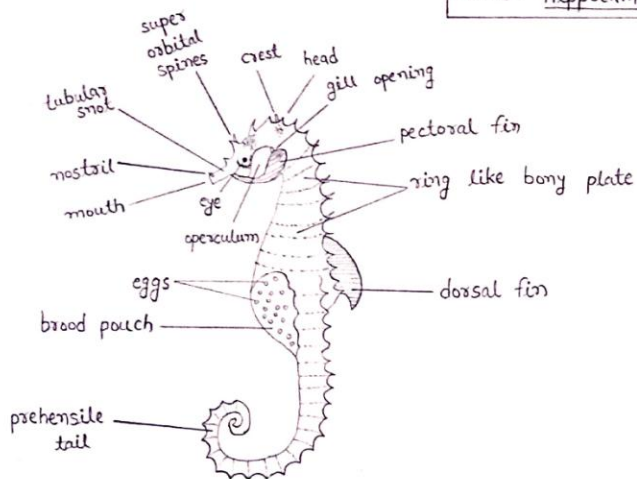 super
orbital
spines
crest
head
gill opening
tubular
snot
pectoral fin
nostril
ring like bony plate
mouth
eye
operculum
eggs
dorsal fin
brood pouch
prehensile
tail